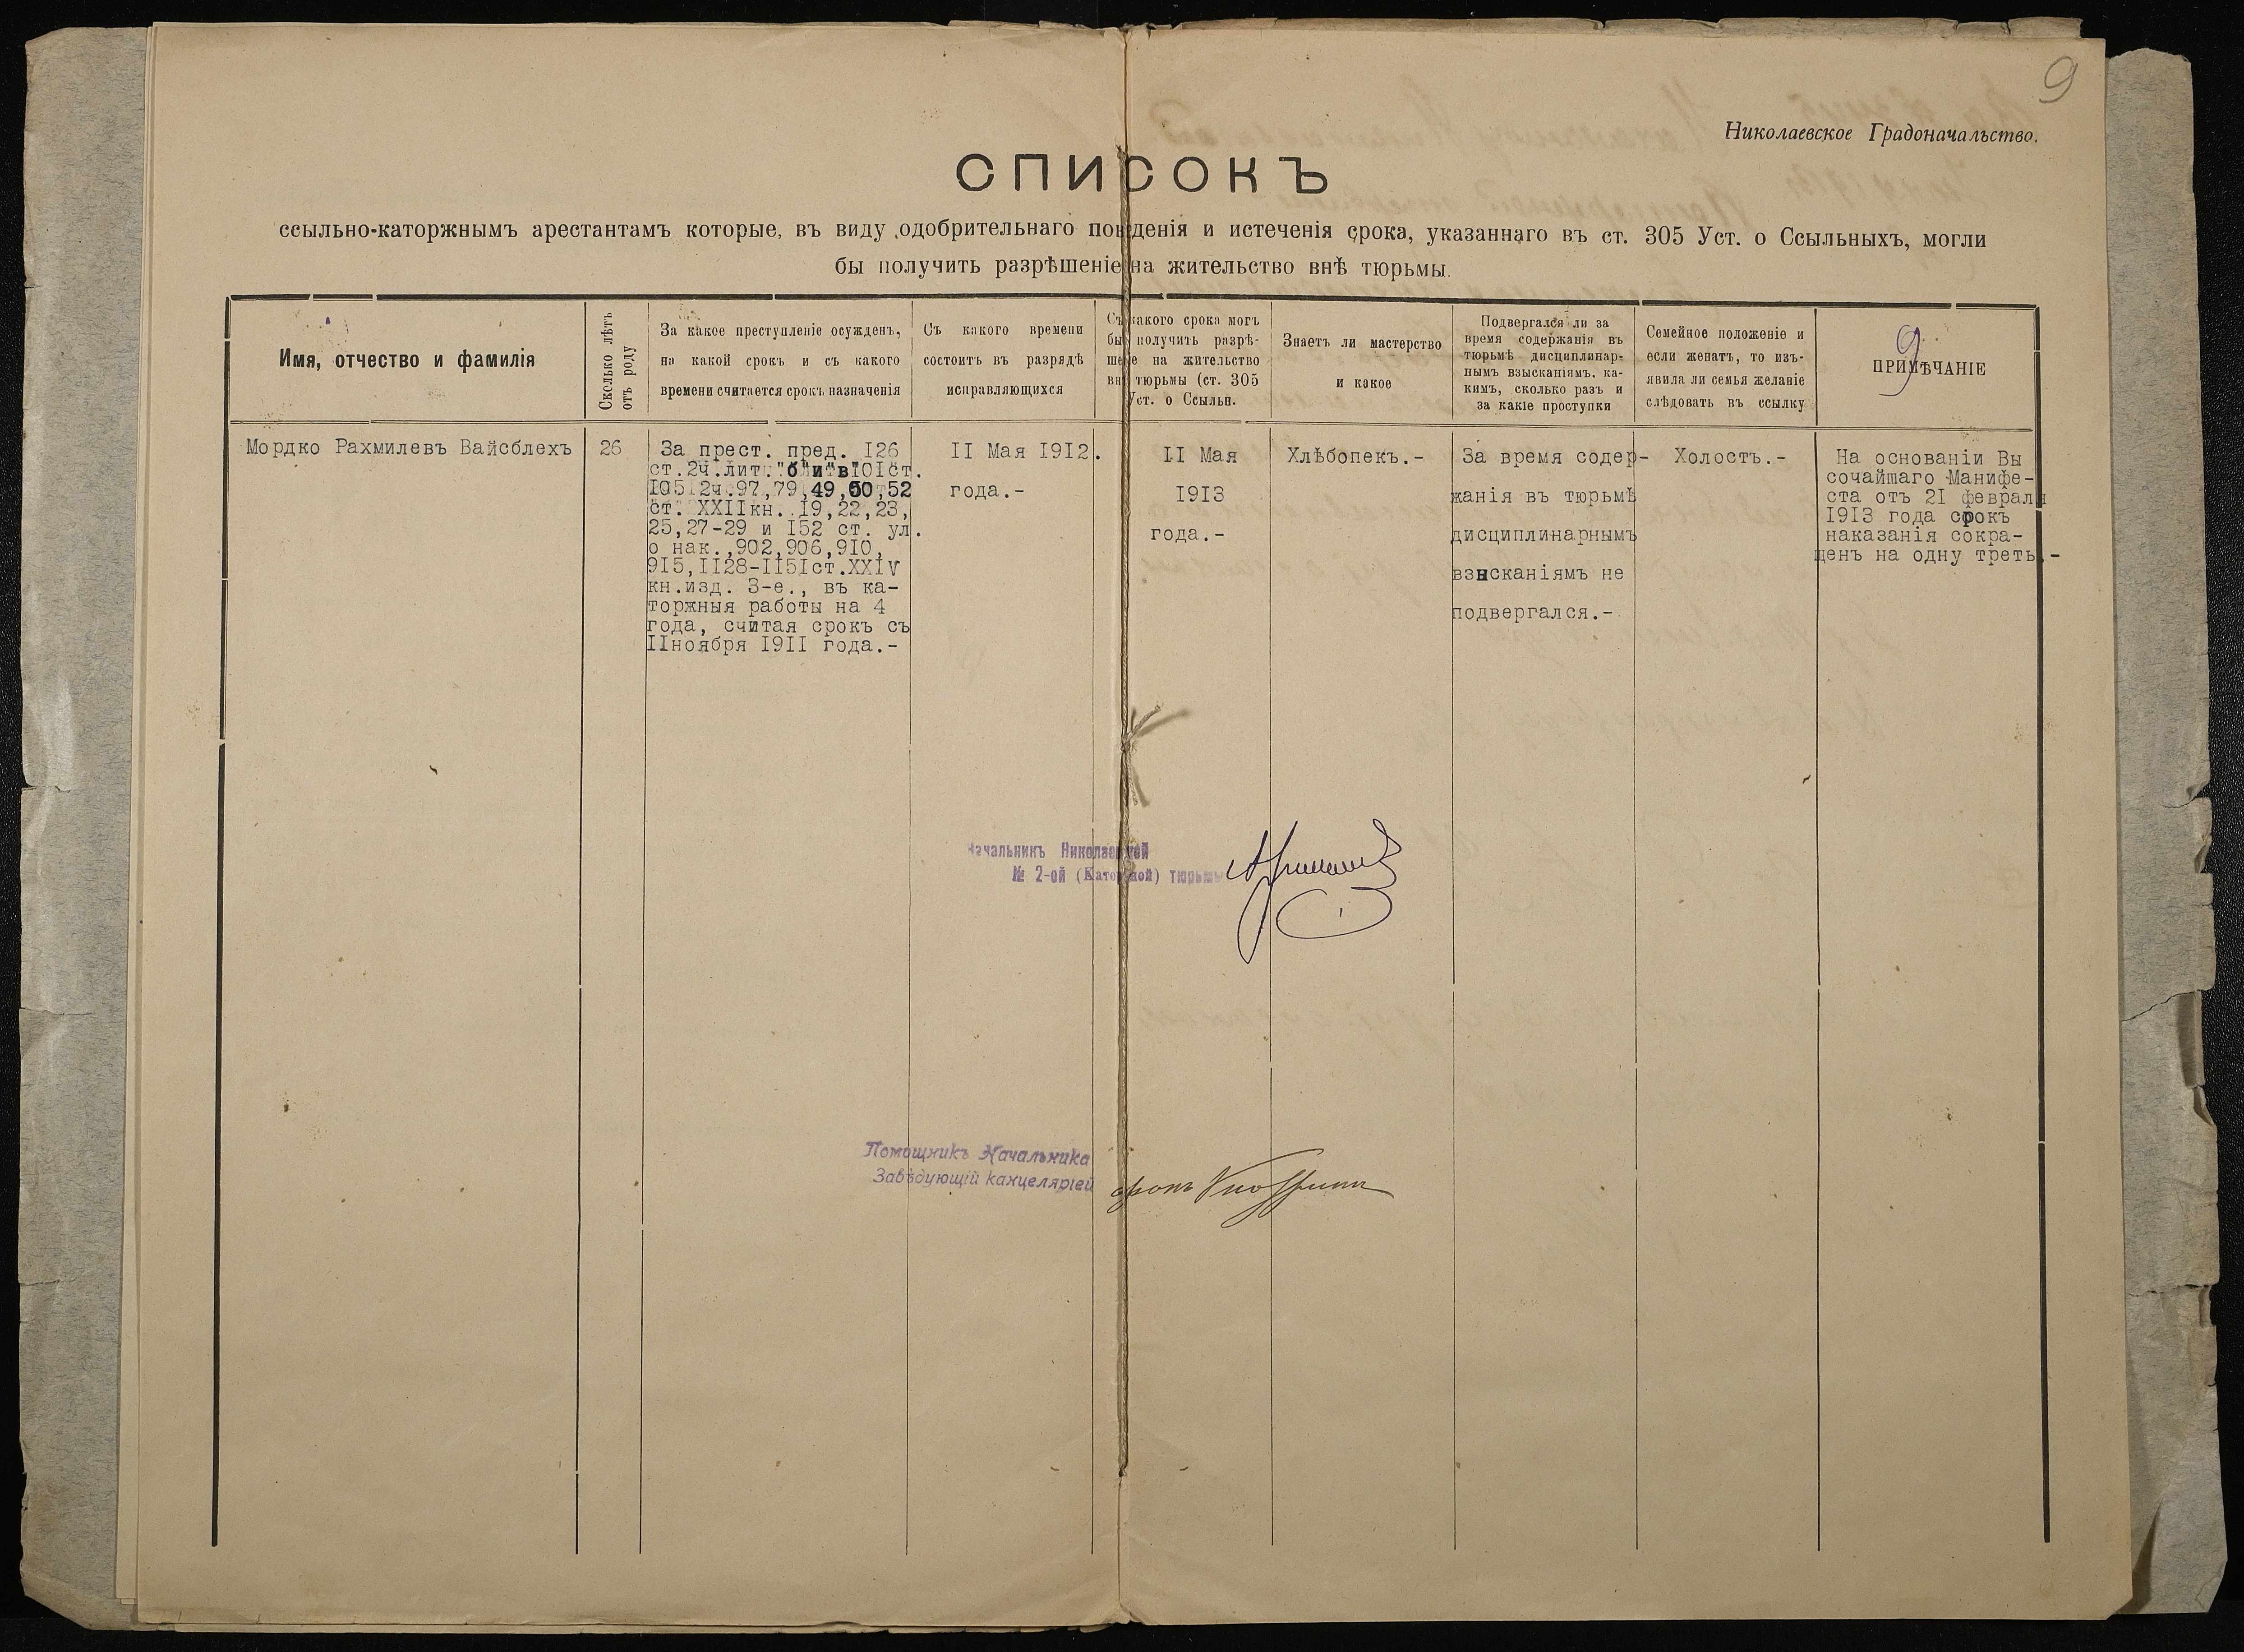 9
Николаевское Градоначальство.
СПИСОКЪ
ссыльно-каторжнымъ арестантамъ которые, въ виду одобрительнаго поведенія и истеченія срока, указаннаго въ ст. 305 Уст. о Ссыльныхъ, могли
бы получить разрѣшеніе на жительство внѣ тюрьмы.
Имя, отчество и фамилія
Сколько лѣтъ
отъ роду
За какое преступленіе осужденъ,
на какой срокъ и съ какого
времени считается срокъ назначенія
Съ какого времени
состоитъ въ разрядѣ
исправляющихся
Съ какого срока могъ
бы получить разрѣ-
шеніе на жительство
внѣ тюрьмы (ст. 305
Уст. о Ссыльн.
Знаетъ ли мастерство
и какое
Подвергался ли за
время содержанія въ
тюрьмѣ дисциплинар-
нымъ взысканіямъ, ка-
кимъ, сколько разъ и
за какіе проступки
Семейное положеніе и
если женатъ, то изъ-
явила ли семья желаніе
слѣдовать въ ссылку
9
ПРИМѢЧАНІЕ
Мордко Рахмилевъ Вайсблехъ
26
За прест. пред. I26
ст.2ч.лит."б"и"в"IOIст.
IO5 2ч.97,79,49,50,52
ст. XXIIкн. I9,22,23,
25,27-29 и I52 ст. ул.
о нак.,902,906,9IO,
9I5,II28-II5Iст.XXIV
кн.изд. 3-е., въ ка-
торжныя работы на 4
года, считая срокъ съ
IIноября I9II года.-
II Мая I9I2.
года.-
II Мая
I9I3
года.-
Хлѣбопекъ.-
За время содер-
жанія въ тюрьмѣ
дисциплинарнымъ
взысканіямъ не
подвергался.-
Холостъ.-
На основаніи Вы
сочайшаго Манифе-
ста отъ 2I февраля
I9I3 года срокъ
наказанія сокра-
щенъ на одну треть.-
Начальникъ Николаевской
№ 2-ой (Каторжной) тюрьмы
Помощникъ Начальника
Завѣдующій канцеляріей